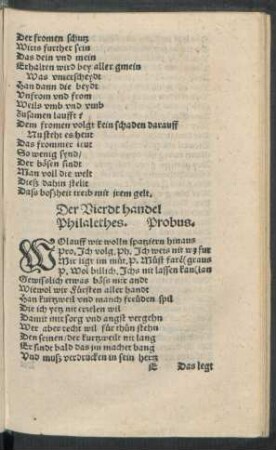 Der fromen schutz
Wirts further sein
Das dein vnd mein
Erhalten wird bey aller gmein
Was vnterscheydt
Han dann die beydt
Vnfrom vnd from
Weils vmb vnd vmb
Zusamen laufft
Dem fromen volgt kein schaden darauff
Nu steht es heut
Das frommer leut
So wenig synd/
Der bösen sindt
Man voll die welt
Dieß dahin stellt
Dass bosheit treib mit irem gelt.
Der Vierdt handel
Philalethes. Probus.
WOlauff wir wolln spatziern hinaus
Pro. Ich volg. Ph. Ich weis nit
Mir ligt im P. Müst
P. Wol billich. Ichs nit lassen kan
Gewißlich etwas böss mir andt
Wiewol wir Fürsten aller handt
Han kurtzweil vnd manch freüden spil
Die ich yetz nit erzelen wil
Damit mit sorg vnd angst vergehn
Wer aber recht wil für thün stehn
Den seinen/ der kurtzweilt nit lang
Er finde bald das im machet bang
Vnd muß verdrucken in sein hertz
E Das legt